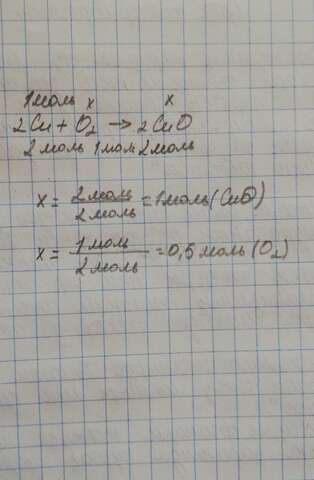 1моль x x
2Cu + O₂ → 2CuO
2 моль 1 мол 2 моль
x = 2 моль / 2 моль = 1 моль (CuO)
x = 1 моль / 2 моль = 0,5 моль (O₂)